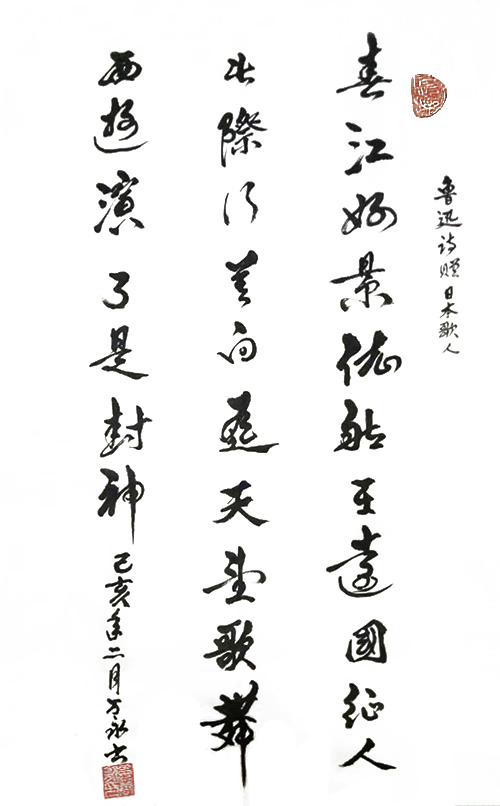 魯迅诗赠日本歌人
春江好景依然在遠國征人
此際行莫向遥天望歌舞
西遊演了是封神
己亥年二月万永书